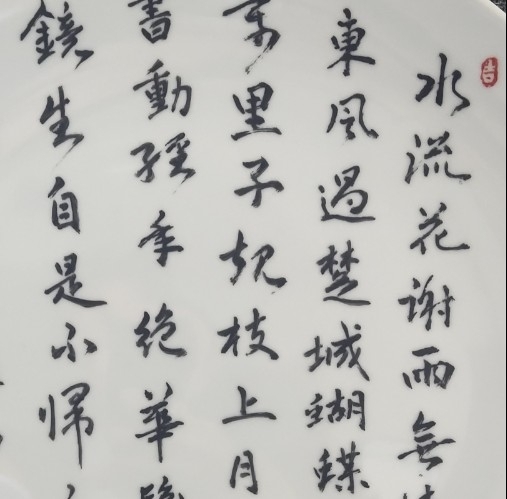 吉
水流花謝兩無
東風過楚城蝴蝶
萬里子規枝上月
書動經年絕華
鏡生自是不歸